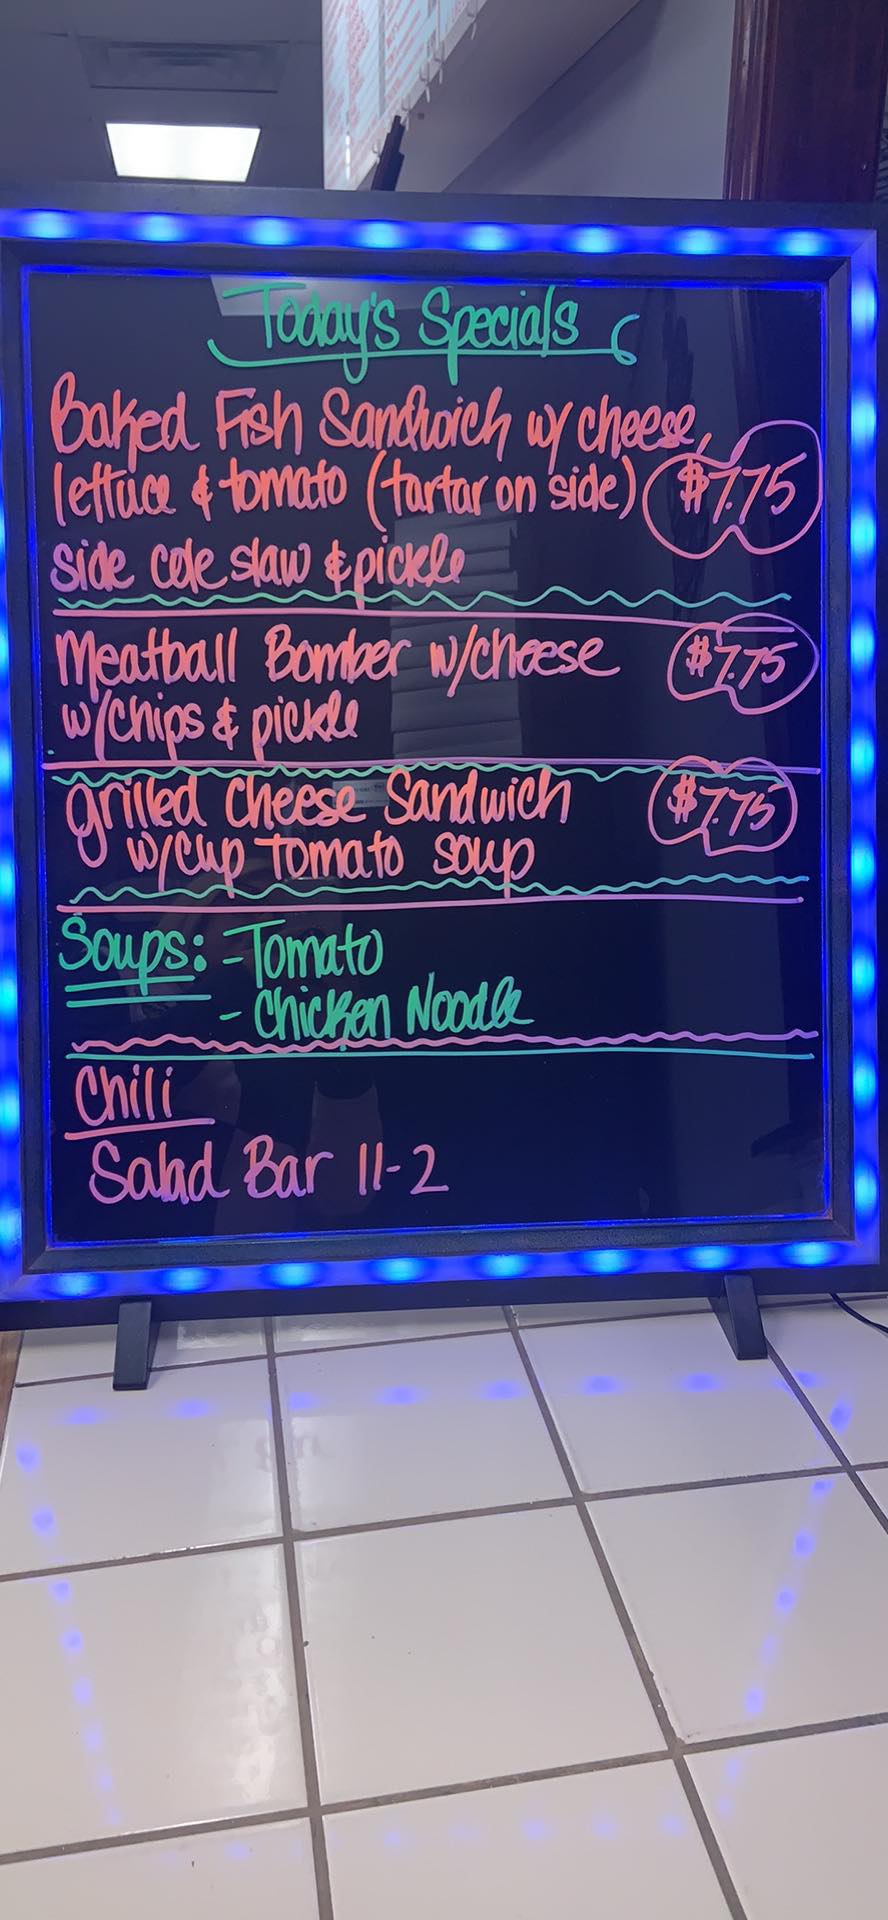 Today's Specials
Baked Fish Sandwich w/ cheese,
lettuce & tomato (tartar on side) $7.75
side cole slaw & pickle
Meatball Bomber w/cheese $7.75
w/chips & pickle
grilled cheese Sandwich $7.75
w/cup Tomato soup
Soups: - Tomato
- Chicken Noodle
Chili
Salad Bar 11-2